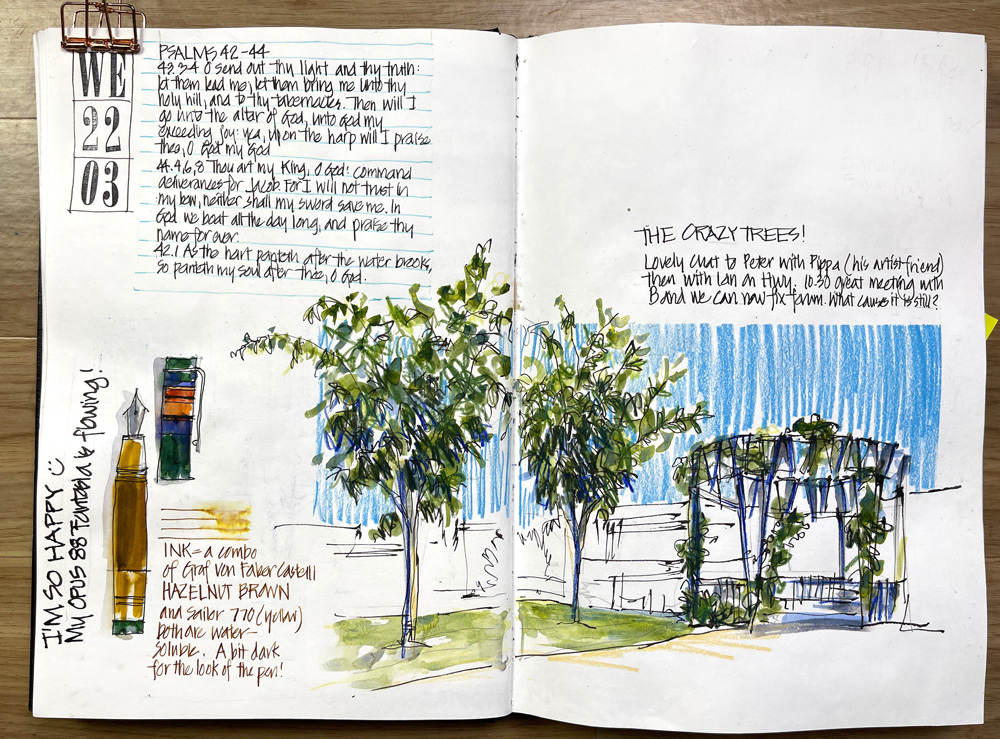 WE
22
03
PSALMS 42-44
43.3-4 O send out thy light and thy truth:
let them lead me; let them bring me unto thy
holy hill, and to thy tabernacles. Then will I
go unto the altar of God, unto God my
exceeding joy: yea, upon the harp will I praise
thee, O God my God
44.4,6,8 Thou art my King, O God: command
deliverances for Jacob. For I will not trust in
my bow, neither shall my sword save me. In
God we boast all the day long, and praise thy
name for ever.
42.1 As the hart panteth after the water brooks,
so panteth my soul after thee, O God.
I'M SO HAPPY
My OPUS 88 Fantasia is flowing!
INK = a combo
of Graf Von Faber Castell
HAZELNUT BROWN
and Sailor 770 (yellow)
both are water-
soluble. A bit dark
for the look of the pen!
THE CRAZY TREES!
Lovely chat to Peter with Pippa (his artist friend)
then with Ian on Hwy. 10.30 great meeting with
B and we can now fix forum. What cause it is still?